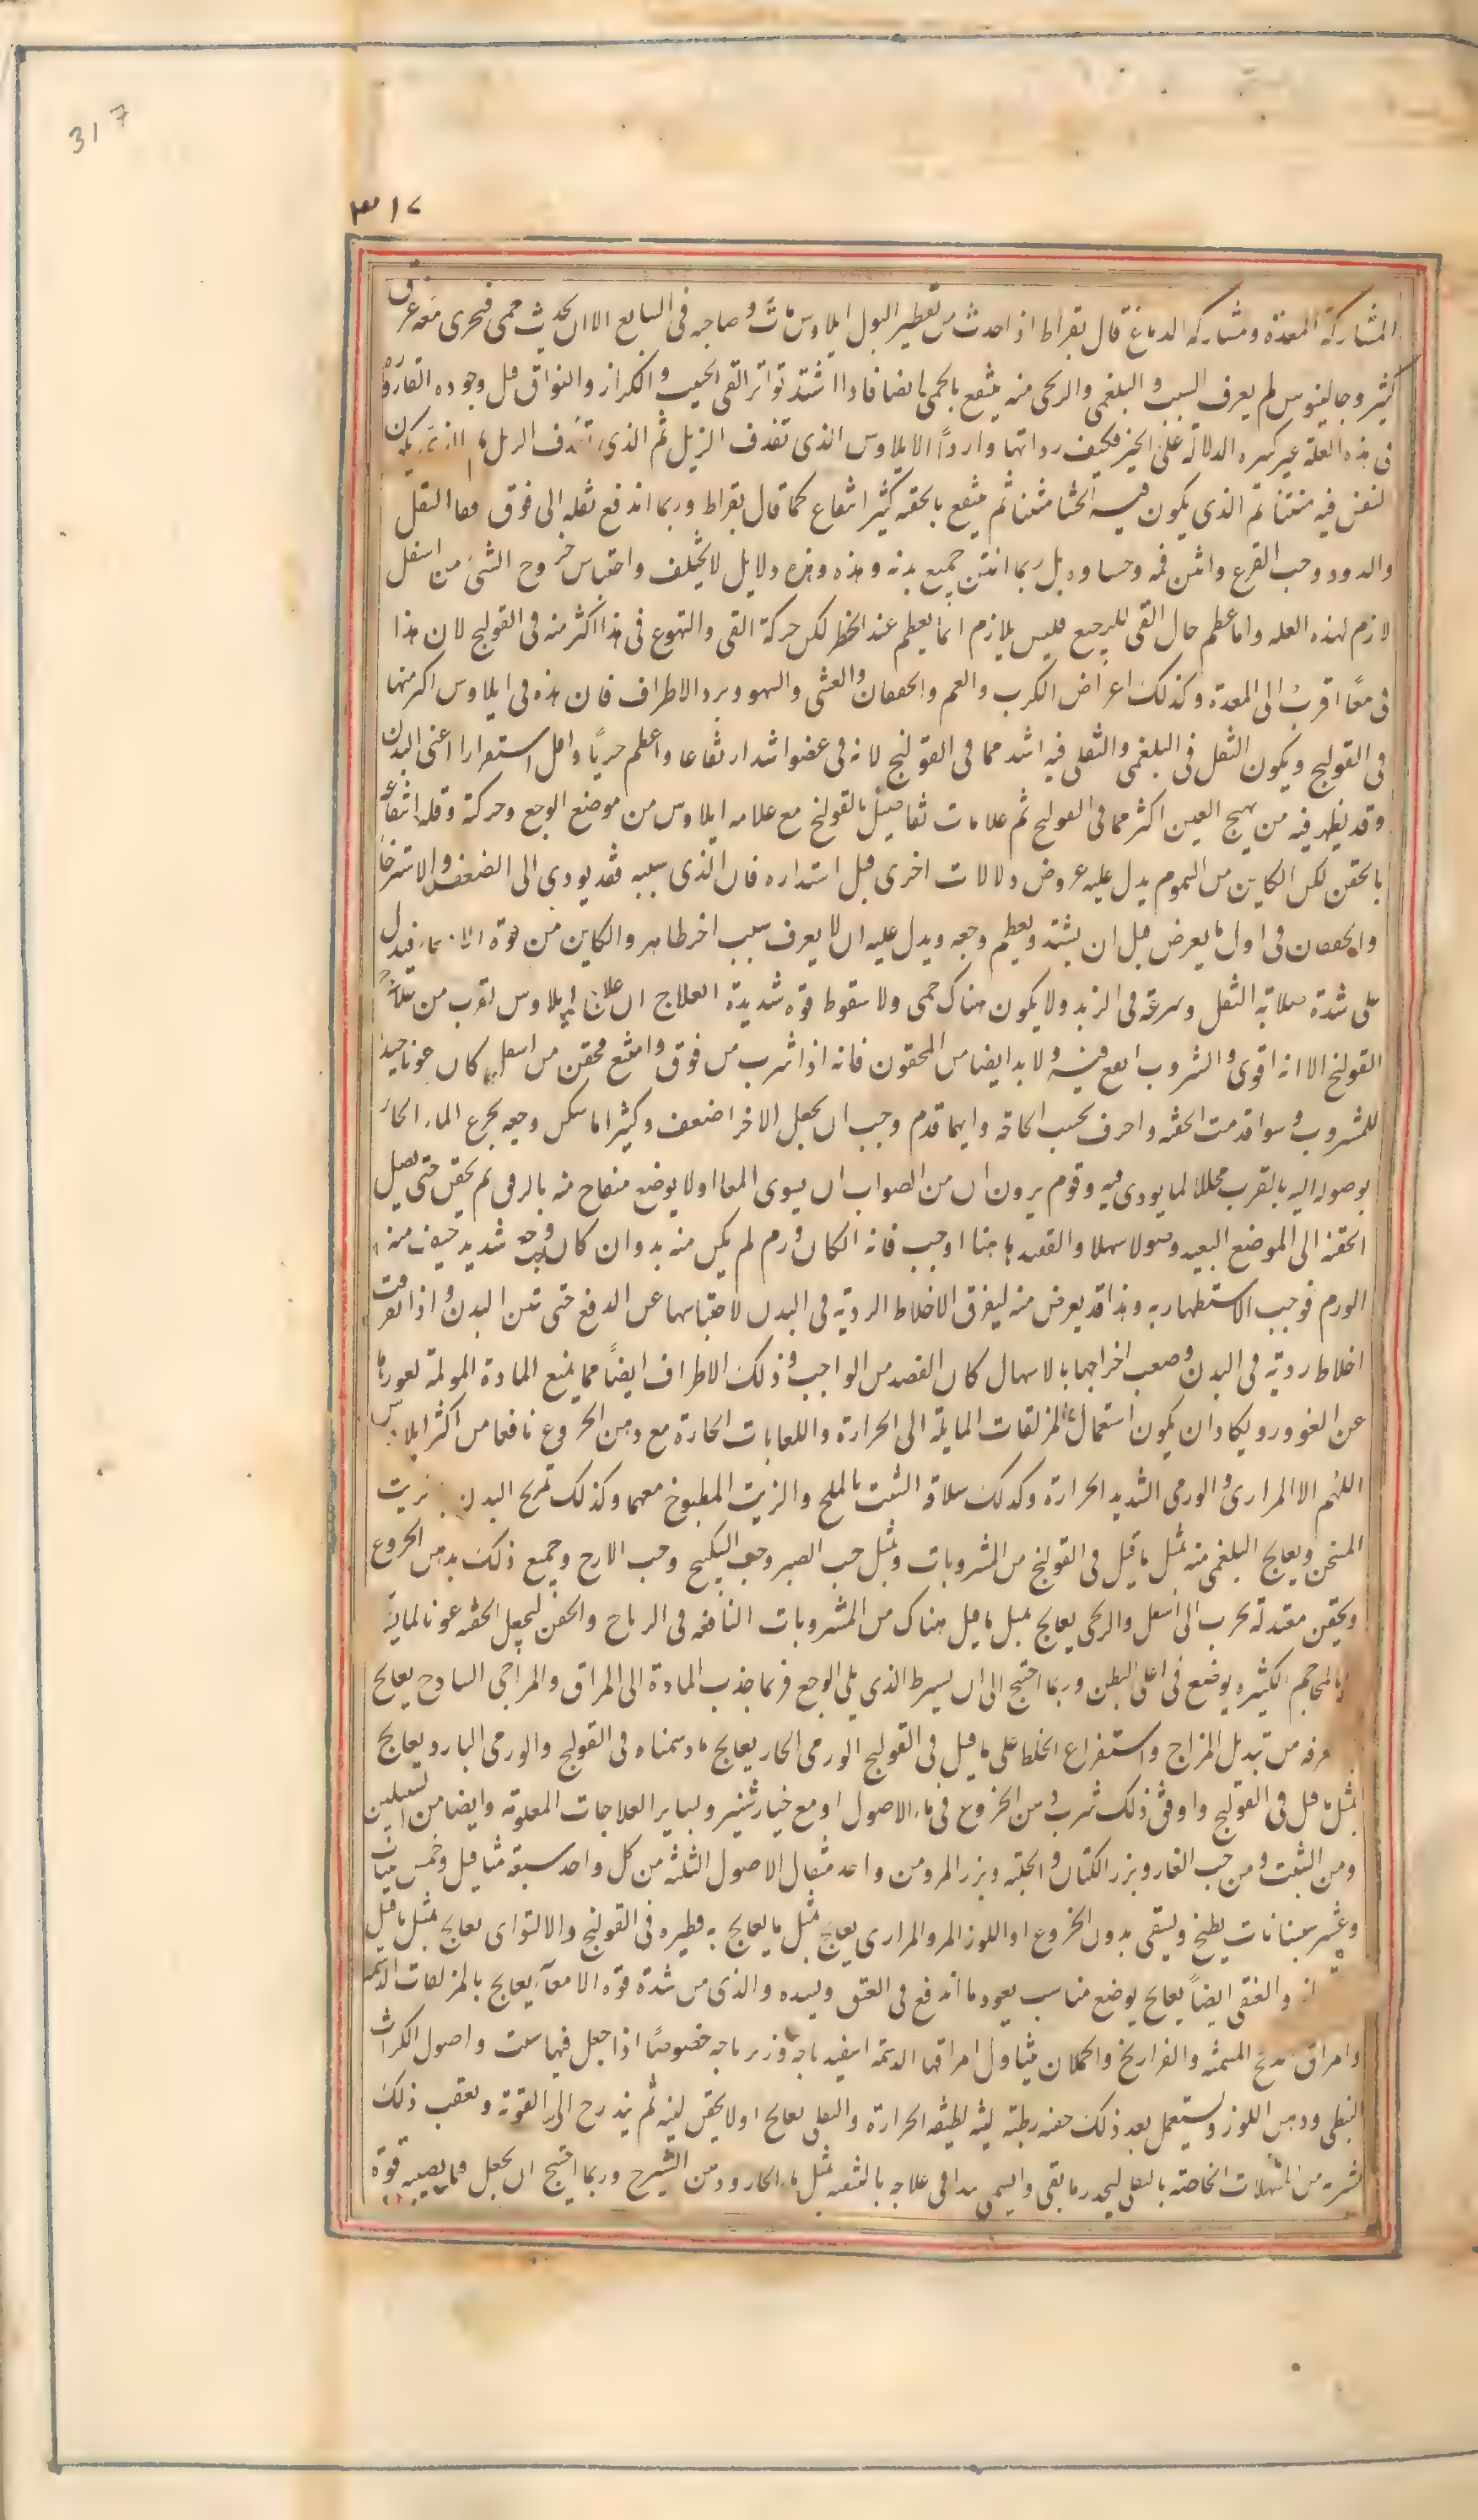 317
٣١٧
المشاركة المعدة ومشاركة الدماغ قال بقراط اذا حدث من تقطير البول ايلاوس مات صاحبه فى السابع الا ان يحدث حمى فيجرى منه عرق
كثير وجالينوس لم يعرف السبب و البلغمى والريحى منه ينتفع بالحمى ايضا فاذا اشتد تواتر القى الحثيث والكزاز والفواق قبل وجوده القاروره
فى هذه العلة غير كثيره الدلالة على الخير فكيف رداتها واردأ الايلاوس الذى تقذف الزبل ثم الذى
النفس فيه منتنا ثم الذى يكون فيه الجشا منتنا ثم ينتفع بالحقنه كثير انتفاع كما قال بقراط وربما اندفع ثفله الى فوق فقا الثفل
والدود وحب القرع وانتن فمه وجساوه بل ربما انتن جميع بدنه وهذه دلايل لا يختلف واحتباس خروج الشى من اسفل
لازم لهذه العله واما عظم حال القى للرجيع فليس يلازم انما يعظم عند الخطر لكن حركة القى والتهوع فى هذا اكثر منه فى القولنج لان هذا
فى معًا اقرب الى المعدة وكذلك اعراض الكرب والغم والخفقان والغشى والسهو وبرد الاطراف فان هذه فى ايلاوس اكثر منها
فى القولنج ويكون الثقل فى البلغمى والثفلى فيه اشد مما فى القولنج لانه فى عضو اشد ارتفاعا واعظم جريًا واقل استقرارا اعنى البدن
وقد يظهر فيه من تهيج العين اكثر مما فى القولنج ثم علامات تفاصيل القولنج مع علامه ايلاوس من موضع الوجع وحركة وقله انتفاعه
بالحقن لكن الكاين من السموم يدل عليه عروض دلالات اخرى قبل اشتداده فان الذى سببه فقد يودى الى الضعف والاسترخا
والخفقان فى اول ما يعرض قبل ان يشتد ويعظم وجعه ويدل عليه ان لا يعرف سبب اخر ظاهر والكاين من قوة الامعاء فيدل
على شدة صلابة الثفل وسرعة فى الزبد ولا يكون هناك حمى ولا سقوط قوة شديدة العلاج ان علاج ايلاوس يقرب من علاج
القولنج الا انه اقوى والمشروب انفع فيه ولا بد ايضا من المحقون فانه اذا شرب من فوق وامتنع محقن من اسفل كان عونا حيدا
للمشروب وسوا قدمت الحقنه واخرت بحسب الحاجة وايما قدم وجب ان يجعل الاخر اضعف وكثيرا ما سكن وجعه بجرع الماء الحار
بوصوله اليه بالقرب محللا لما يوذى فيه وقوم يرون ان من الصواب ان يسوى المعا اولا بوضع منفاخ منه بالرفق ثم يحقن حتى يصل
الحقنه الى الموضع البعيد وصولا سهلا والفصد ها هنا اوجب فانه ان كان ورم لم يكن منه بد وان كان وجع شديد خيف منه
الورم فوجب الاستظهار به وهذا قد يعرض منه ليفرق الاخلاط الردية فى البدن لاحتباسها عن الدفع حتى تنتن البدن واذا تفرقت
اخلاط ردية فى البدن وصعب اخراجها بالاسهال كان الفصد من الواجب وذلك الاطراف ايضًا مما يمنع المادة المولمة لغورها
عن الغوور ويكاد ان يكون استعمال المزلقات المايلة الى الحرارة واللعابات الحارة مع دهن الخروع نافعا من اكثر ايلاوس
اللهم الا المرارى والورمى الشديد الحرارة وكذلك سلاقة الشبت بالملح والزيت المطبوخ معهما وكذلك تمريخ البدن بزيت
المسخن ويعالج البلغمى منه بمثل ما قيل فى القولنج من المشروبات وبمثل حب الصبر وحب السكبينج وحب الايارج وجميع ذلك بدهن الخروع
ويحقن معتدلة يجرب الى اسفل والريحى يعالج بمثل ما قيل هناك من المشروبات النافعه فى الرياح والحقن ليجعل الحقنه عونا لماينه
وبالمحاجم الكثيره يوضع فى اعلى البطن وربما احتج الى ان يشرط الذى يلى الوجع فربما جذب المادة الى المراق والمزاجى الساذج يعالج
من تبديل المزاج واستفراغ الخلط على ما قيل فى القولنج الورمى الحار يعالج ما رسمناه فى القولنج والورمى البارد يعالج
بمثل ما قيل فى القولنج واوفق ذلك شرب دهن الخروع فى ماء الاصول او مع خيارشنبر وبساير العلاجات المعلومة وايضا من
ومن الشبت ومن حب الغار وبزر الكتان والحلبة وبزر المرو من واحد مثقال الاصول الثلثه من كل واحد سبعة مثاقيل وخمس تينات
وعشر سبستانات يطبخ ويسقى بدهن الخروع او اللوز المر والمرارى يعالج بمثل ما يعالج به نظيره فى القولنج والالتوائى يعالج بمثل ما قيل
والفتقى ايضاً يعالج بوضع مناسب يعود ما اندفع فى الفتق ويشده والذى من شدة قوة الامعآء يعالج بالمزلقات الدسمه
وامراق المسمنه والفراريخ والحملان يتناول امراقها الدسمة اسفيدباجه وزيرباجه خصوصًا اذا جعل فيها شبت واصول الكراث
النبطى ودهن اللوز ويستعمل بعد ذلك حقنه رطبة لينه لطيفه الحرارة والثفلى يعالج اولا يحقن لينه ثم يتدرج الى القويه ويعقب ذلك
بشربه من المسهلات الخاصة بالثفل ليحدر ما بقى والسمى يبدا فى علاجه بالتنقيه بمثل ماء الحار ودهن الشيرج وربما احتج ان يجعل فيما يصيبه قوة